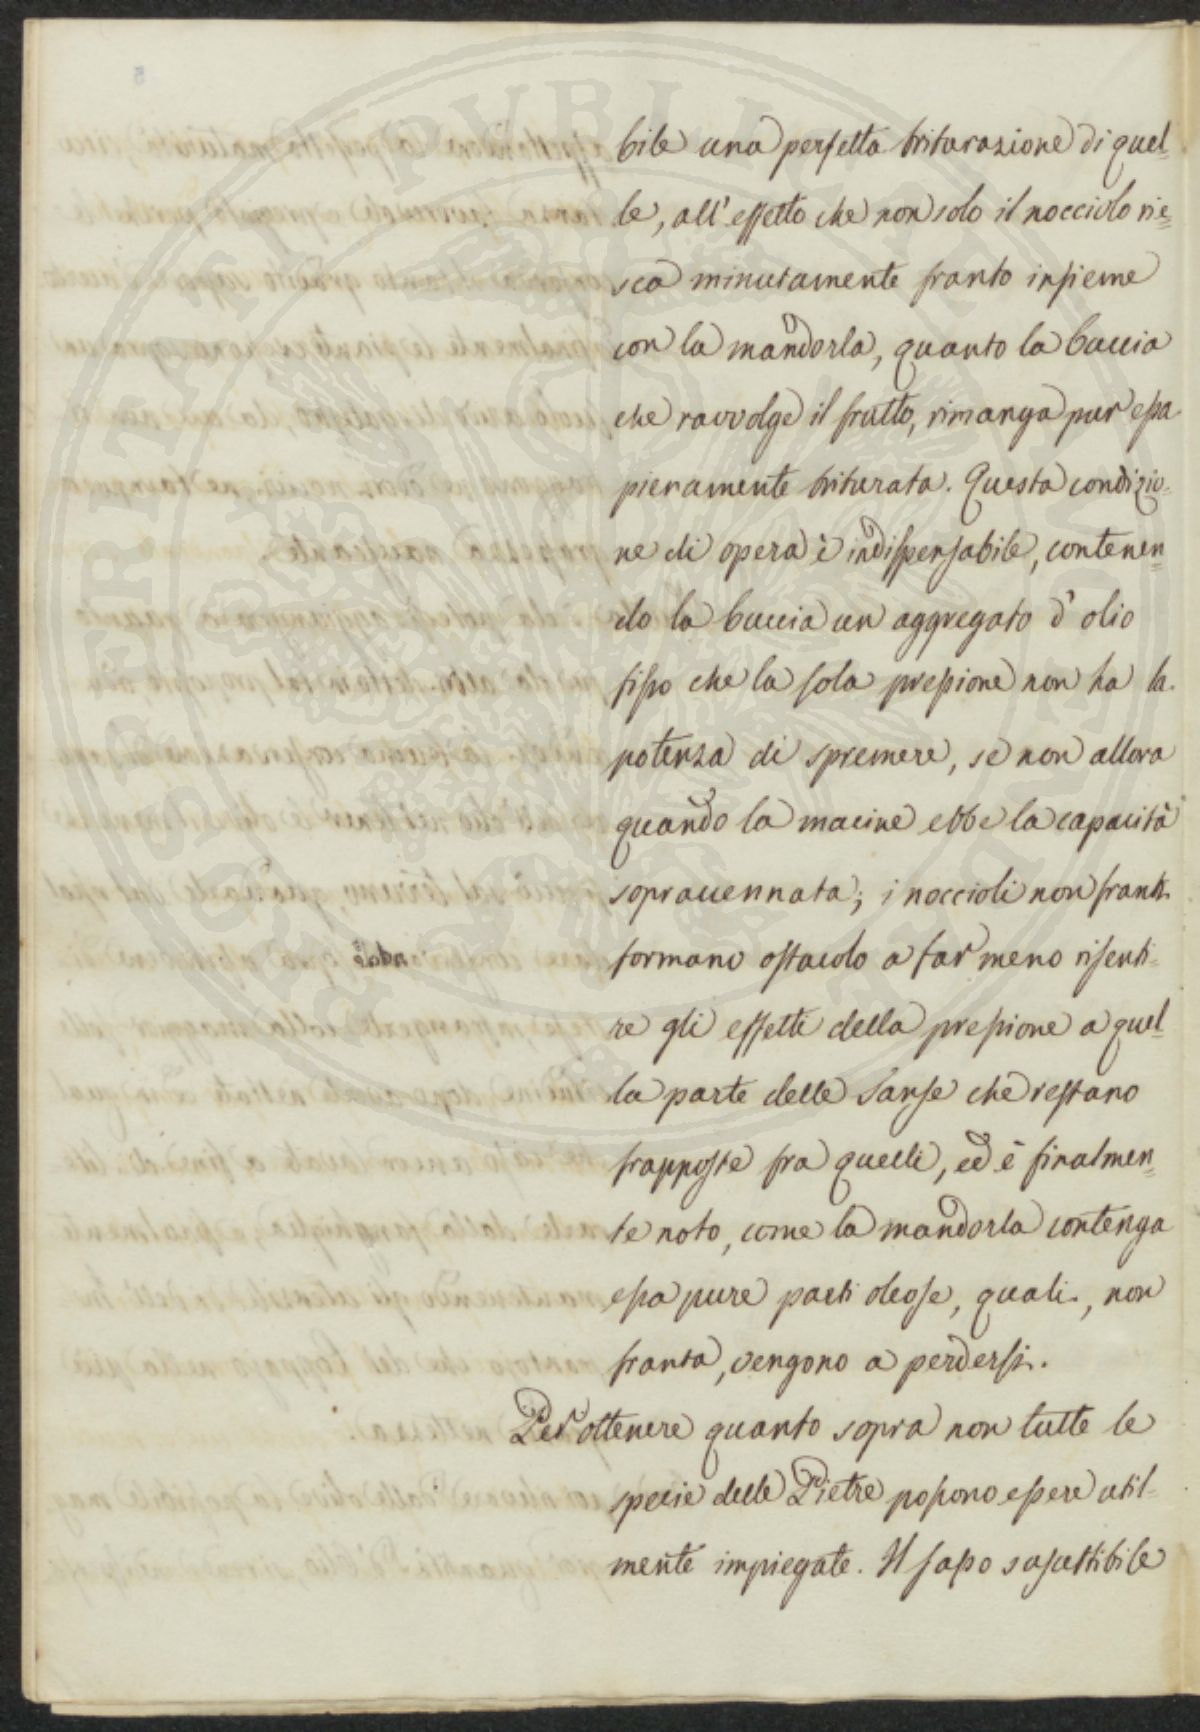 bile una perfetta triturazione di quel=
le, all'effetto che non solo il nocciolo rie=
sca minutamente franto insieme
con la mandorla, quanto la buccia
che ravvolge il frutto, rimanga pur essa
pienamente triturata. Questa condizio=
ne di opera è indispensabile, contenen=
do la buccia un aggregato d'olio
fisso che la sola pressione non ha la
potenza di spremere, se non allora
quando la macine ebbe la capacità
sopraccennata; i noccioli non franti
formano ostacolo a far meno risenti=
re gli effetti della pressione a quel=
la parte delle Sanse che restano
frapposte fra quelli, ed è finalmen=
te noto, come la mandorla contenga
essa pure parti oleose, quali, non
franta, vengono a perdersi.
Per ottenere quanto sopra non tutte le
specie delle Pietre possono essere util=
mente impiegate. Il sasso
PROSPERITATI PUBLICAE